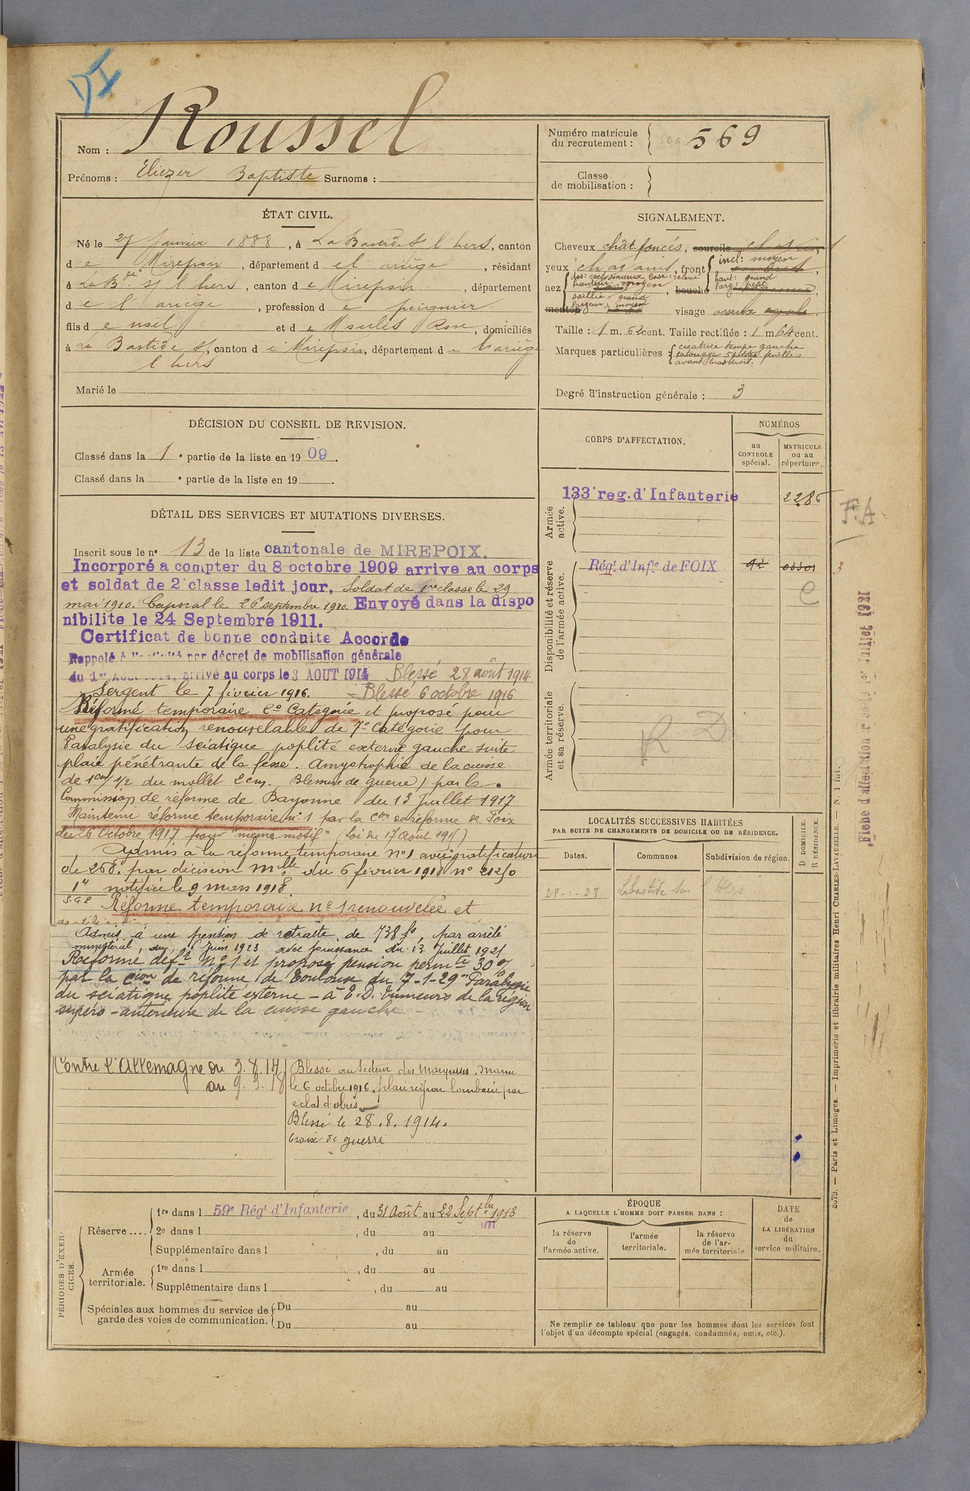 Nom : Roussel
Prénoms : Eliezer Baptiste Surnoms :
Numéro matricule du recrutement : 569
Classe de mobilisation :
ÉTAT CIVIL.
Né le 27 Janvier 1888, à La Bastide s/ l'hers, canton
de Mirepoix, département de l'ariège, résidant
à La B.de s/ l'hers, canton de Mirepoix, département
de l'ariège, profession de peignier
fils de et de Rose, domiciliés
à La Bastide s/ canton de Mirepoix, département de l'ariège
l'hers
Marié le
SIGNALEMENT.
Cheveux chât foncés, sourcils
yeux chatains, front incl: moyen
nez haut: grand
menton visage
Taille : 1 m. 62 cent. Taille rectifiée : 1 m 64 cent.
Marques particulières : cicatrice tempe gauche
Degré d'instruction générale : 3
DÉCISION DU CONSEIL DE REVISION.
Classé dans la 1e partie de la liste en 1909.
Classé dans la e partie de la liste en 19
DÉTAIL DES SERVICES ET MUTATIONS DIVERSES.
Inscrit sous le n° 13 de la liste cantonale de MIREPOIX.
Incorporé a compter du 8 octobre 1909 arrive au corps
et soldat de 2e classe ledit jour, Soldat de 1re classe le 29
mai 1910. Caporal le 26 septembre 1910. Envoyé dans la dispo
nibilite le 24 Septembre 1911.
Certificat de bonne conduite Accordé
Rappelé à l'activité par décret de mobilisation générale
du 1er Août 1914, arrivé au corps le 3 AOUT 1914 Blessé 28 août 1914
Sergent le 7 février 1916. - Blessé 6 octobre 1916
Réformé temporaire 2e Catégorie et proposé pour
une gratification renouvelable de 7e Catégorie pour
Paralysie du sciatique poplité externe gauche suite
plaie pénétrante de la fesse. Amyotrophie de la cuisse
de 1cm 1/2 du mollet 2cm. Blessure de guerre) par la
Commission de réforme de Bayonne du 13 Juillet 1917
Maintenu réforme temporaire n° 1 par la Con de réforme de Foix
du 26 Octobre 1917 pour "même motif" (Loi du 17 août 1915)
Admis à la réforme temporaire n° 1 avec gratification
de 258f. par décision mlle du 6 février 1918 n° 21250
notifiée le 9 mars 1918.
Réforme temporaire n° 1 renouvelée et
Admis à une pension de retraite de 738 f., par arrêté
ministériel, du Juin 1923 avec jouissance du 13 Juillet 1921
Réformé déf.t N° 1 et proposé pension perm.te 30 %
par la Cion de réforme de Toulouse du 7-1-29 "Paralysie
du sciatique poplité externe - à E.O. Tumeurs de la région
supero-anterieure de la cuisse gauche
Contre l'Allemagne du 3.8.14
au 9.3.18
Blessé au secteur des Marquises. Marne
le 6 octobre 1916. plaie région lombaire par
eclat d'obus
Blessé le 28.8.1914.
Croix de guerre
CORPS D'AFFECTATION.
NUMÉROS
au CONTROLE spécial.
MATRICULE ou au répertoire.
Armée active.
133e reg. d'Infanterie 2285
Disponibilité et réserve de l'armée active.
Régt d'Infie de FOIX
Armée territoriale et sa réserve.
R D
F.A
LOCALITÉS SUCCESSIVES HABITÉES
PAR SUITE DE CHANGEMENTS DE DOMICILE OU DE RÉSIDENCE.
Dates. Communes Subdivision de région. D DOMICILE. R RÉSIDENCE.
Labastide sur l'Hers
PÉRIODES D'EXERCICES.
Réserve.... 1re dans l 59e Régt d'Infanterie, du 31 Août au 22 Septbre 1913
2e dans l , du au
Supplémentaire dans l , du au
Armée territoriale. 1re dans l , du au
Supplémentaire dans l , du au
Spéciales aux hommes du service de garde des voies de communication. Du au
Du au
ÉPOQUE
A LAQUELLE L'HOMME DOIT PASSER DANS :
la réserve de l'armée active.
l'armée territoriale.
la réserve de l'armée territoriale
DATE de LA LIBÉRATION du service militaire.
Ne remplir ce tableau que pour les hommes dont les services font
l'objet d'un décompte spécial (engagés, condamnés, omis, etc.).
Paris et Limoges. — Imprimerie et librairie militaires Henri CHARLES-LAVAUZELLE.